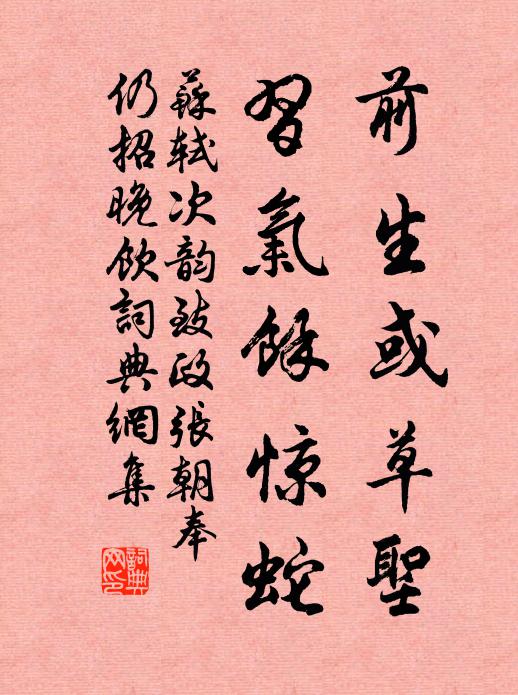 前生或草聖
習氣餘惊蛇
蘇軾次韵致政張朝奉
仍招晚飲詞典網集
詞典網印